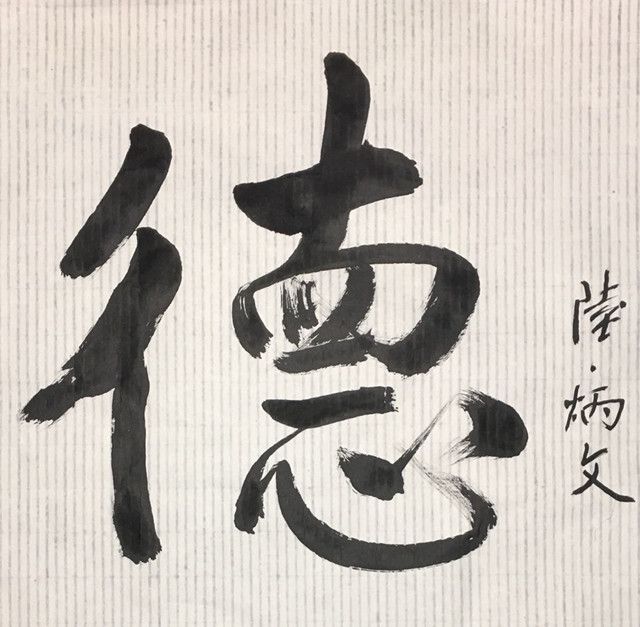 德
陸炳文